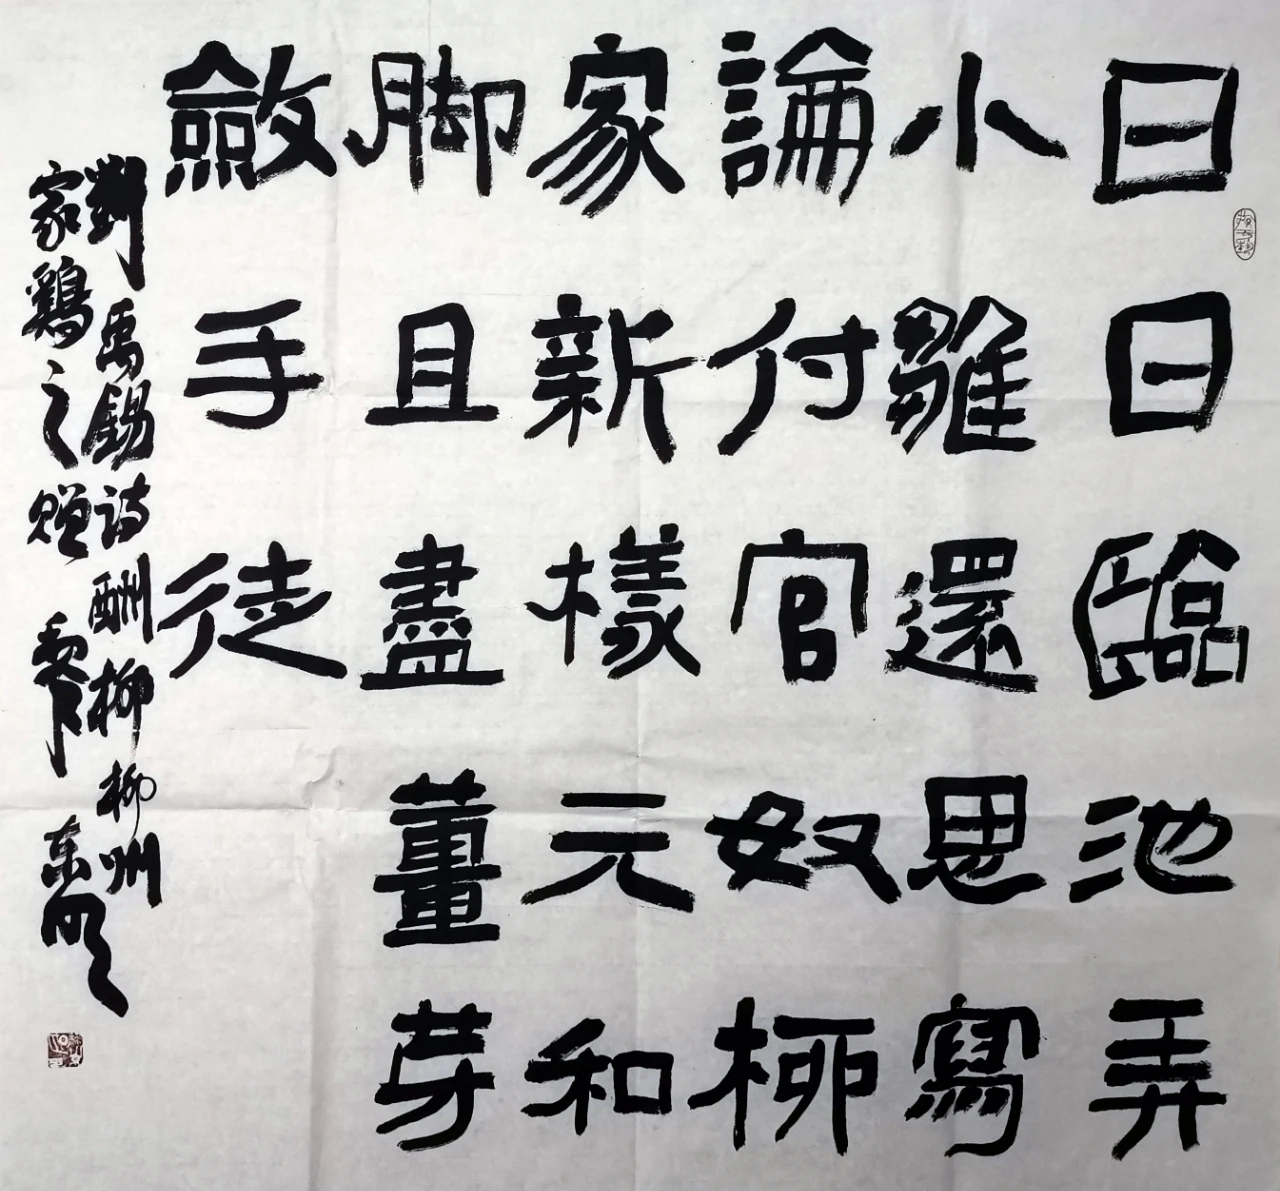 日日臨池弄
小雛還思寫
論付官奴柳
家新樣元和
脚且盡薑芽
斂手徒
劉禹錫诗酬柳柳州
家鷄之贈